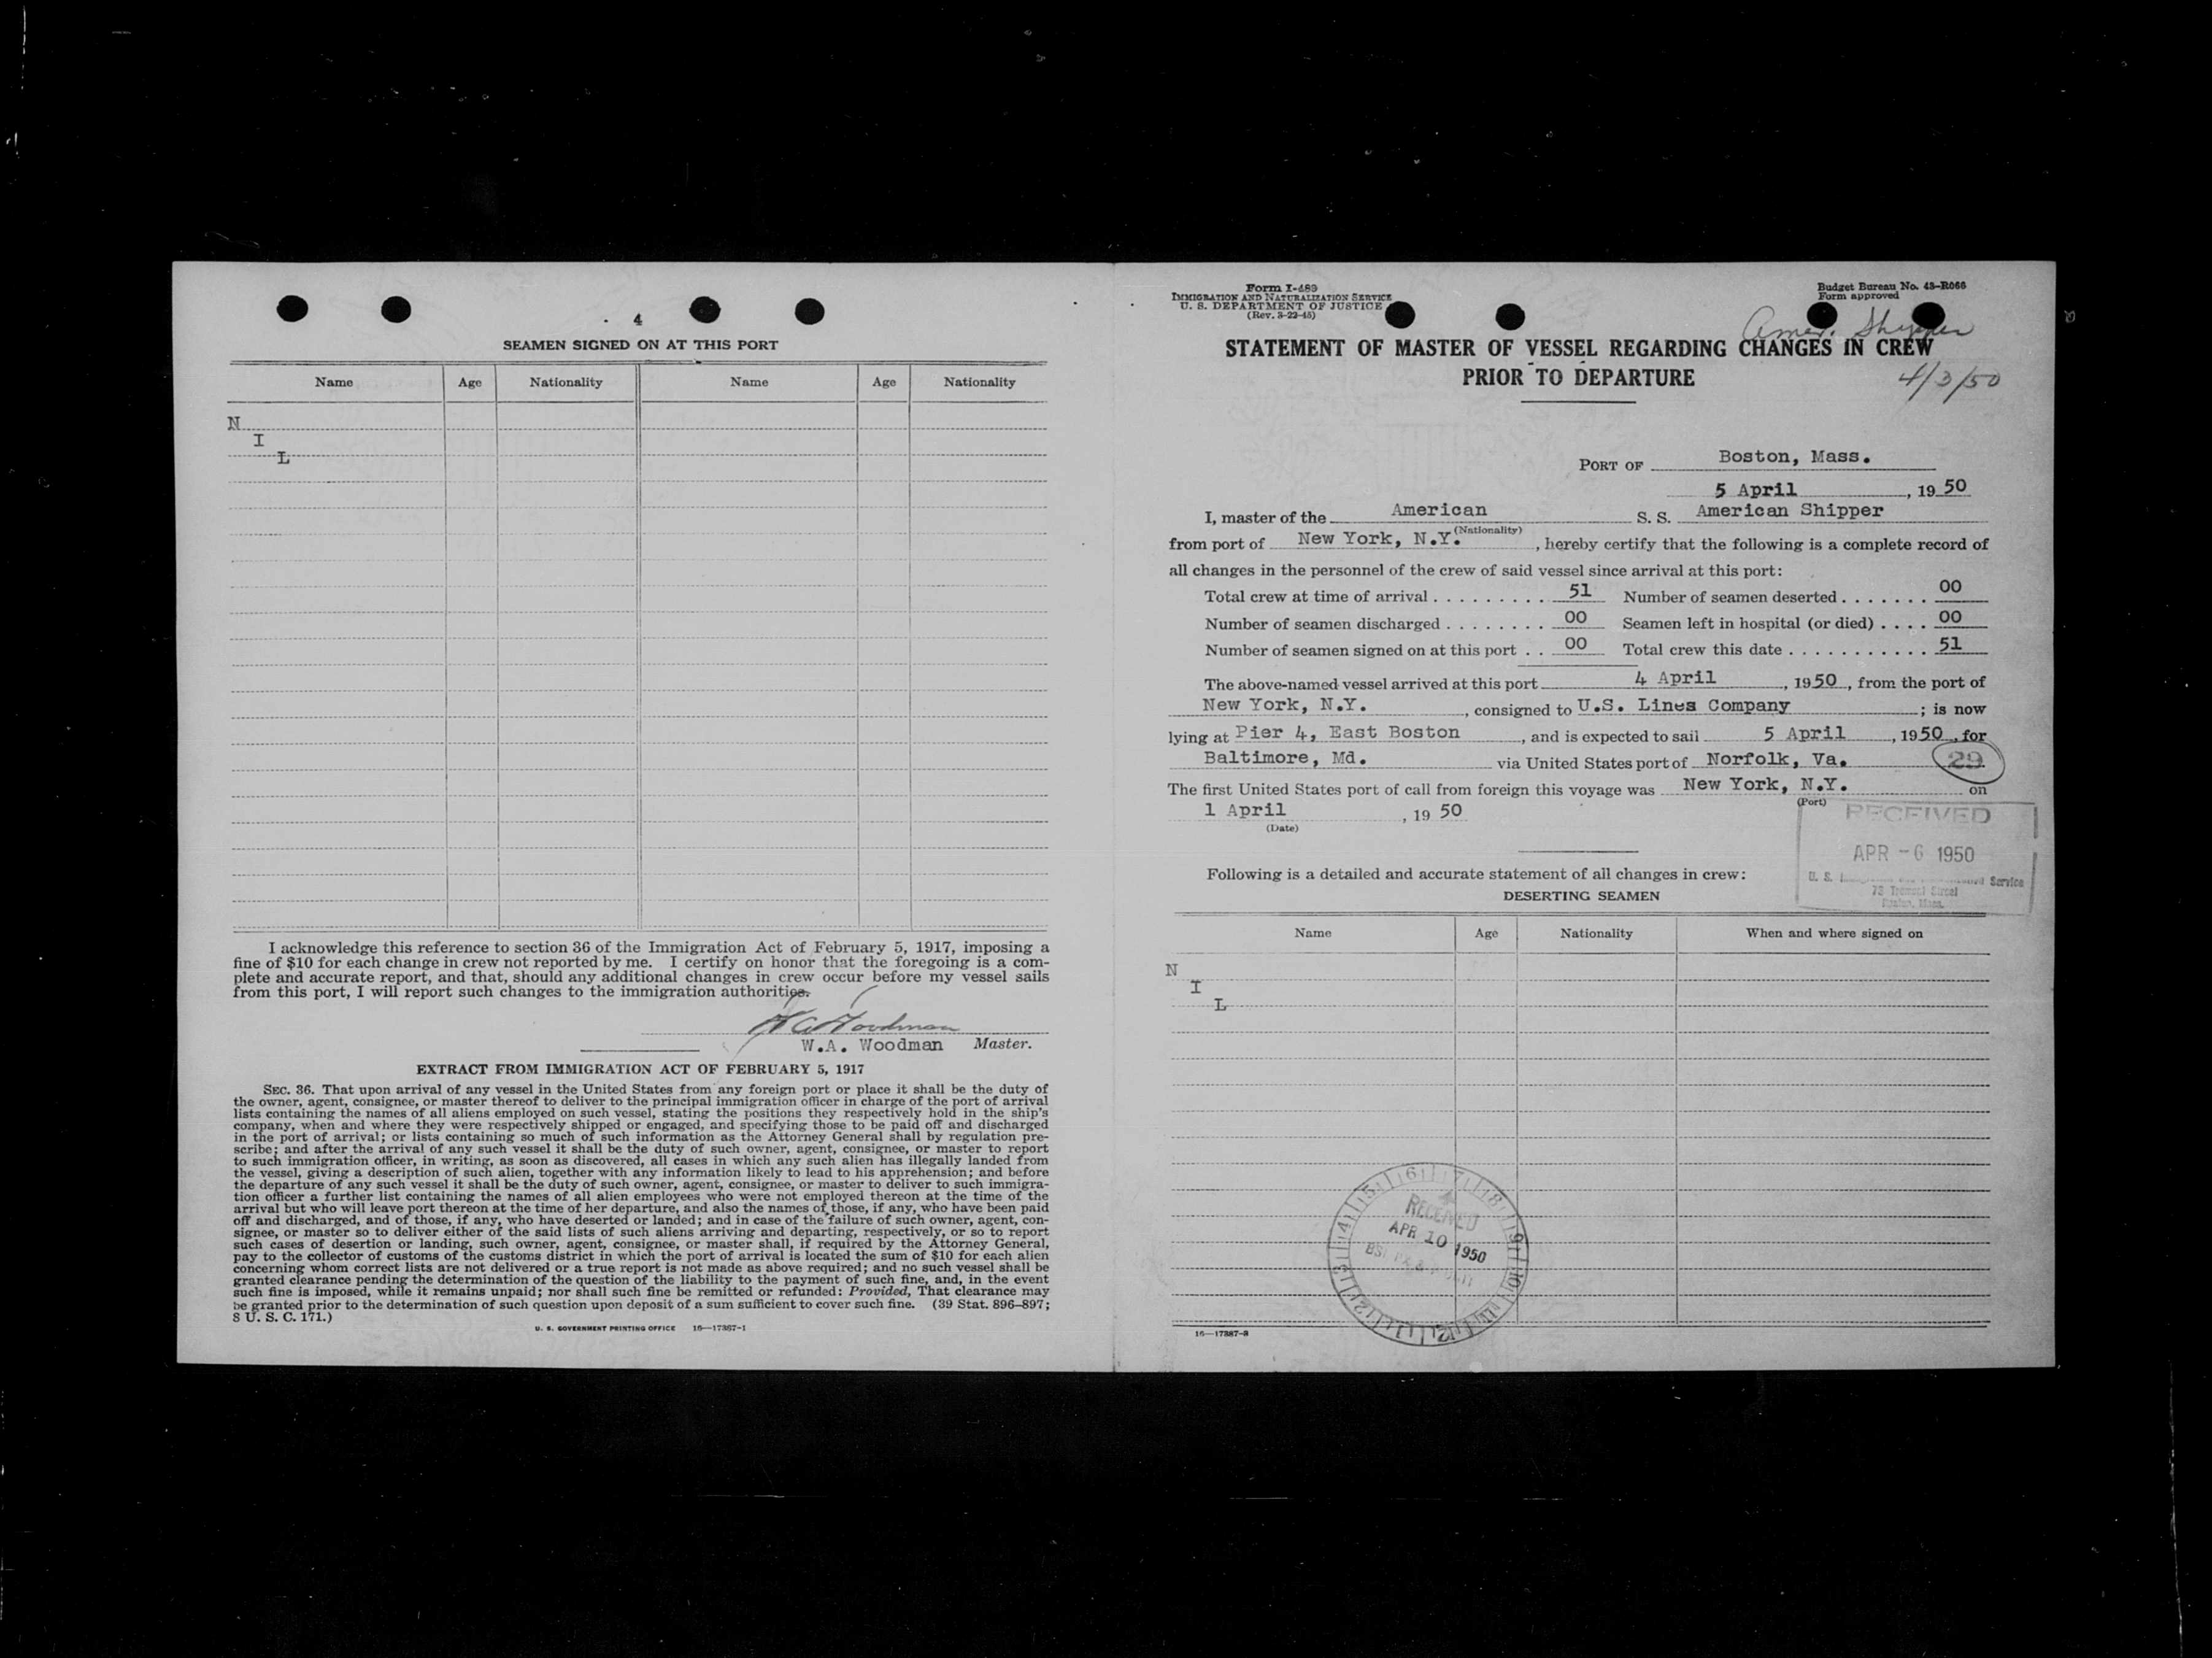 4
SEAMEN SIGNED ON AT THIS PORT
Name Age Nationality Name Age Nationality
N
I
L
I acknowledge this reference to section 36 of the Immigration Act of February 5, 1917, imposing a
fine of $10 for each change in crew not reported by me. I certify on honor that the foregoing is a com-
plete and accurate report, and that, should any additional changes in crew occur before my vessel sails
from this port, I will report such changes to the immigration authorities.
W A Woodman
W.A. Woodman Master.
EXTRACT FROM IMMIGRATION ACT OF FEBRUARY 5, 1917
SEC. 36. That upon arrival of any vessel in the United States from any foreign port or place it shall be the duty of
the owner, agent, consignee, or master thereof to deliver to the principal immigration officer in charge of the port of arrival
lists containing the names of all aliens employed on such vessel, stating the positions they respectively hold in the ship's
company, when and where they were respectively shipped or engaged, and specifying those to be paid off and discharged
in the port of arrival; or lists containing so much of such information as the Attorney General shall by regulation pre-
scribe; and after the arrival of any such vessel it shall be the duty of such owner, agent, consignee, or master to report
to such immigration officer, in writing, as soon as discovered, all cases in which any such alien has illegally landed from
the vessel, giving a description of such alien, together with any information likely to lead to his apprehension; and before
the departure of any such vessel it shall be the duty of such owner, agent, consignee, or master to deliver to such immigra-
tion officer a further list containing the names of all alien employees who were not employed thereon at the time of the
arrival but who will leave port thereon at the time of her departure, and also the names of those, if any, who have been paid
off and discharged, and of those, if any, who have deserted or landed; and in case of the failure of such owner, agent, con-
signee, or master so to deliver either of the said lists of such aliens arriving and departing, respectively, or so to report
such cases of desertion or landing, such owner, agent, consignee, or master shall, if required by the Attorney General,
pay to the collector of customs of the customs district in which the port of arrival is located the sum of $10 for each alien
concerning whom correct lists are not delivered or a true report is not made as above required; and no such vessel shall be
granted clearance pending the determination of the question of the liability to the payment of such fine, and, in the event
such fine is imposed, while it remains unpaid; nor shall such fine be remitted or refunded: Provided, That clearance may
be granted prior to the determination of such question upon deposit of a sum sufficient to cover such fine. (39 Stat. 896–897;
8 U. S. C. 171.)
U. S. GOVERNMENT PRINTING OFFICE 16—17387-1
Form I-489
IMMIGRATION AND NATURALIZATION SERVICE
U. S. DEPARTMENT OF JUSTICE
(Rev. 3-22-45)
Budget Bureau No. 43-R066
Form approved
Amer. Shipper
STATEMENT OF MASTER OF VESSEL REGARDING CHANGES IN CREW
PRIOR TO DEPARTURE
4/3/50
PORT OF Boston, Mass.
5 April, 19 50
I, master of the American S. S. American Shipper
(Nationality)
from port of New York, N.Y., hereby certify that the following is a complete record of
all changes in the personnel of the crew of said vessel since arrival at this port:
Total crew at time of arrival . . . . . . . . . . 51 Number of seamen deserted . . . . . . . 00
Number of seamen discharged . . . . . . . . 00 Seamen left in hospital (or died) . . . . 00
Number of seamen signed on at this port . . 00 Total crew this date . . . . . . . . . . . 51
The above-named vessel arrived at this port 4 April, 1950, from the port of
New York, N.Y., consigned to U.S. Lines Company; is now
lying at Pier 4, East Boston, and is expected to sail 5 April, 1950, for
Baltimore, Md. via United States port of Norfolk, Va.
29
The first United States port of call from foreign this voyage was New York, N.Y. on
(Port)
1 April, 19 50
(Date)
RECEIVED
APR -6 1950
U. S. Service
73 Tremont Street
Boston, Mass.
Following is a detailed and accurate statement of all changes in crew:
DESERTING SEAMEN
Name Age Nationality When and where signed on
N
I
L
RECEIVED
APR 10 1950
16—17387-3